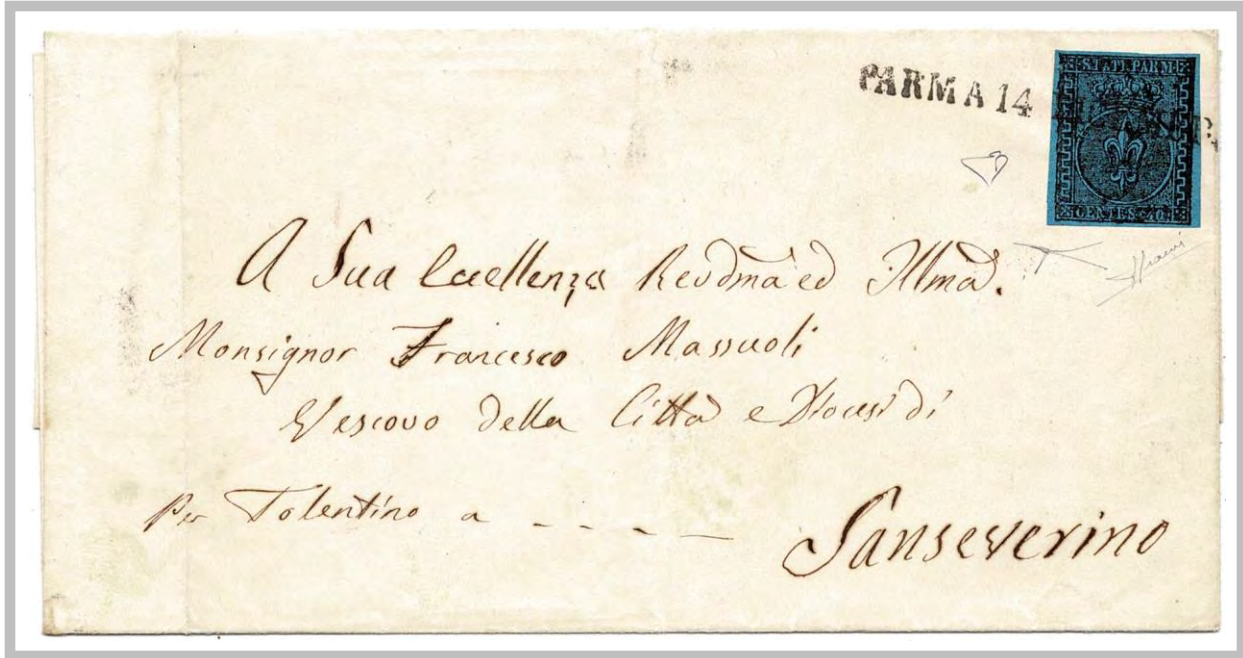 PARMA 14
STATI PARM.
CENTES. 40
A Sua Eccellenza Revdma ed Illma.
Monsignor Francesco Massuoli
Vescovo della Città e Diocesi di
Per Tolentino a - - - -
Sanseverino